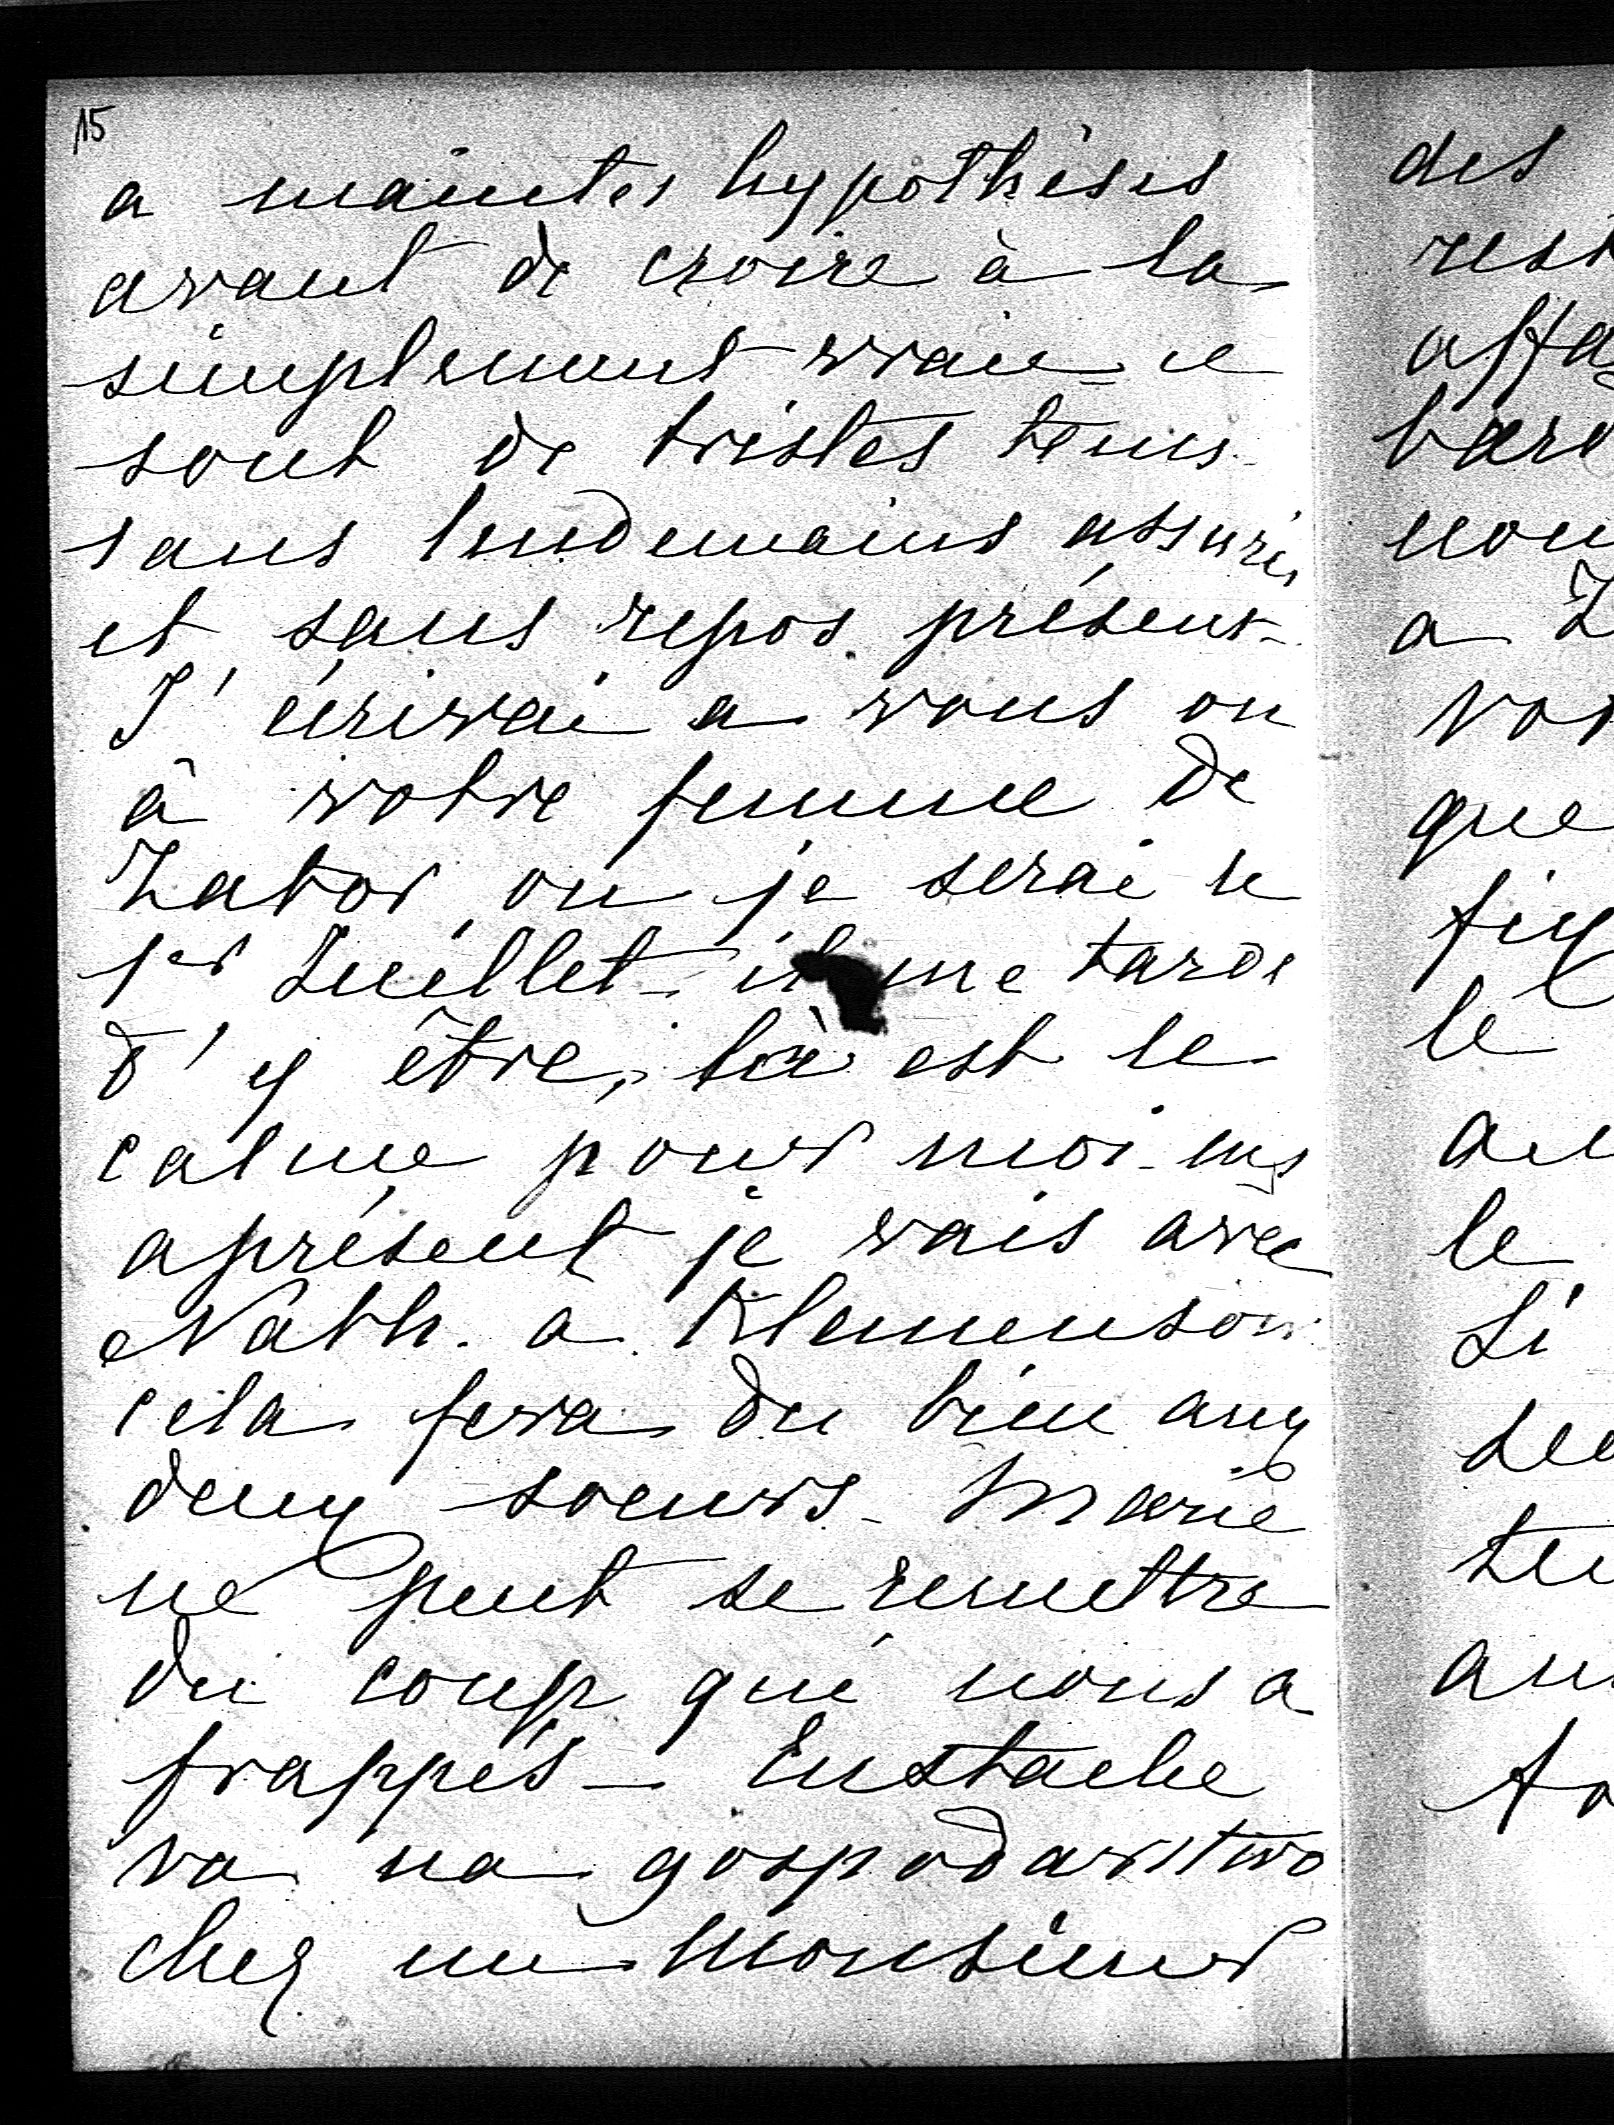 15
a maintes hypothèses
avant de croire à la
simplement vraie - ce
sont de tristes tems
sans lendemains assurés
et sans repos présent -
J'écrirai a vous ou
à votre femme de
Zator ou je serai le
1er Juillet - il me tarde
d'y être, là est le
calme pour moi -
aprésent je vais avec
Nath. a Klemenson
cela fera du bien aux
deux soeurs - Marie
ne peut se remettre
du coup qui nous a
frappés - Eustache
va na gospodarstwo
chez un Monsieur
des
affa
a Z
que
le
le